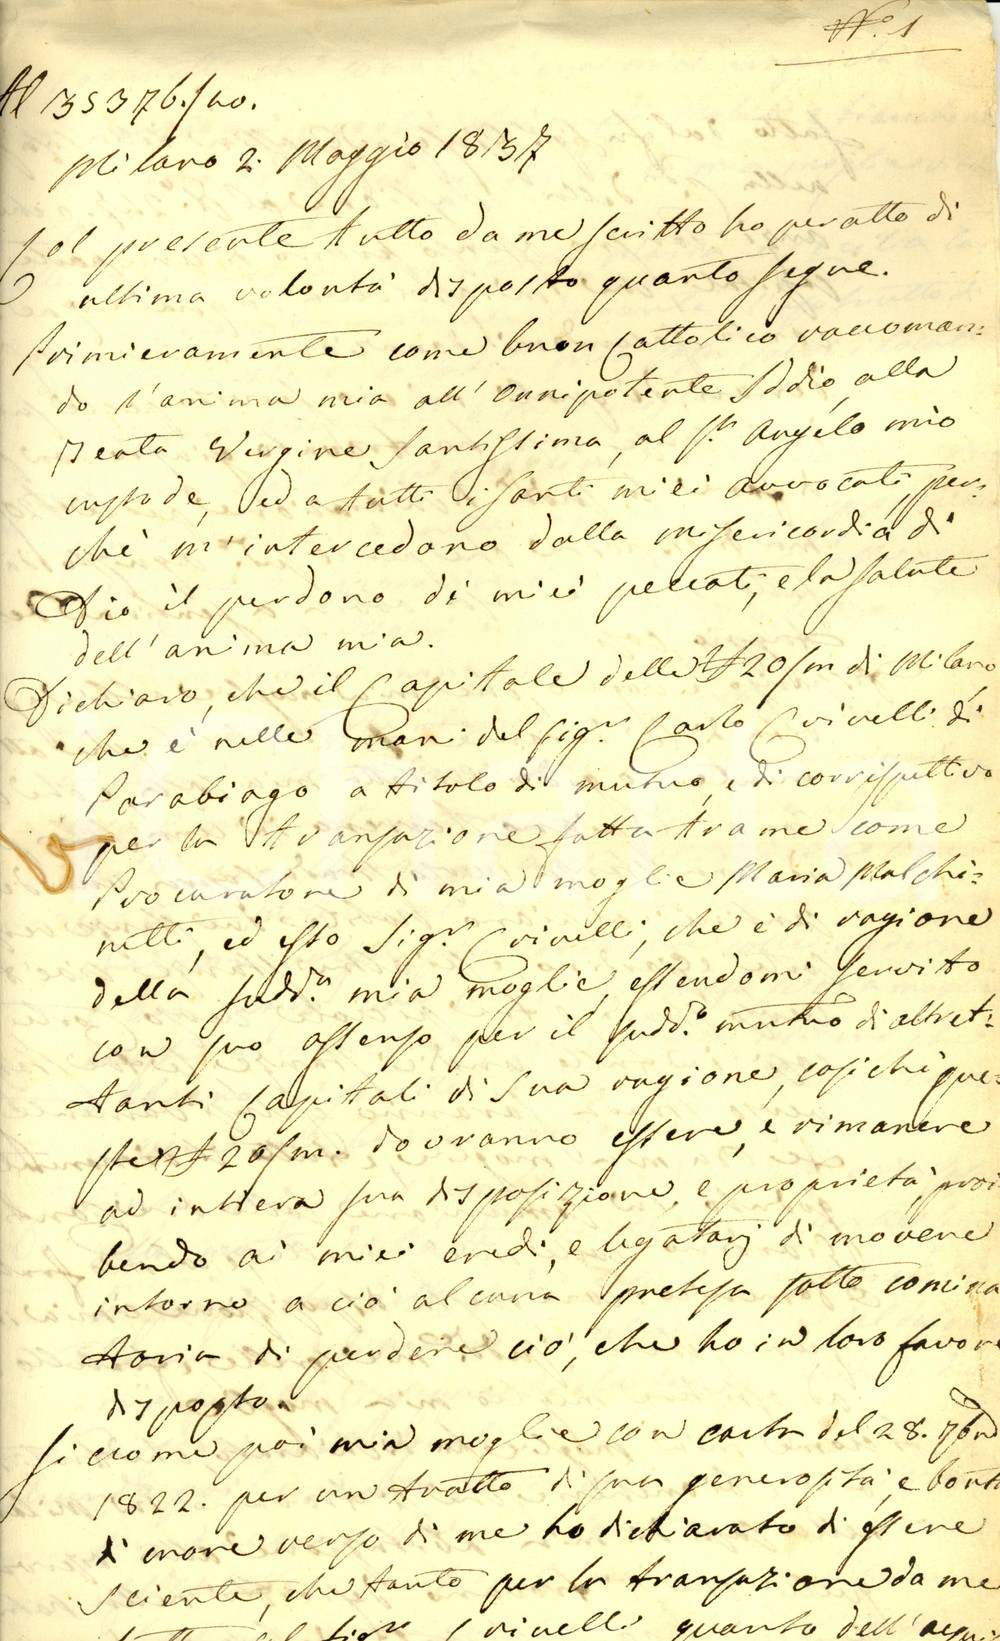 N.° 1
Al 35376./no.
Milano 2. Maggio 1837
Col presente tutto da me scritto ho per atto di
ultima volontà disposto quanto segue.
Primieramente come buon Cattolico raccoman=
do l'anima mia all'Onnipotente Iddio, alla
Beata Vergine Santissima, al S.to Angelo mio
custode, ed a tutti i santi miei avvocati, per=
chè m'intercedano dalla misericordia di
Dio il perdono di miei peccati, e la salute
dell'anima mia.
Dichiaro, che il Capitale delle 20/m di Milano
che è nelle mani del Sig.r Carlo Crivelli di
Parabiago a titolo di mutuo, e di corrispettivo
per la transazione fatta tra me come
Procuratore di mia moglie Maria Malchi=
netti, ed esso Sig.r Crivelli, che è di ragione
della sudd.a mia moglie, essendomi servito
con suo assenso per il sudd.o mutuo di altret=
tanti Capitali di sua ragione, cosichè que=
ste 20/m. dovranno essere, e rimanere
ad intiera sua disposizione, e proprietà, proi
bendo ai miei eredi, e legatarj di movere
intorno a ciò alcuna pretesa sotto comina
toria di perdere ciò, che ho in loro favore
disposto.
Siccome poi mia moglie con carta del 28. 7bre
1822. per un tratto di sua generosità, e bontà
di cuore verso di me ha dichiarato di essere
sciente, che tanto per la transazione da me
fatta col Sig.r Crivelli quanto dell'